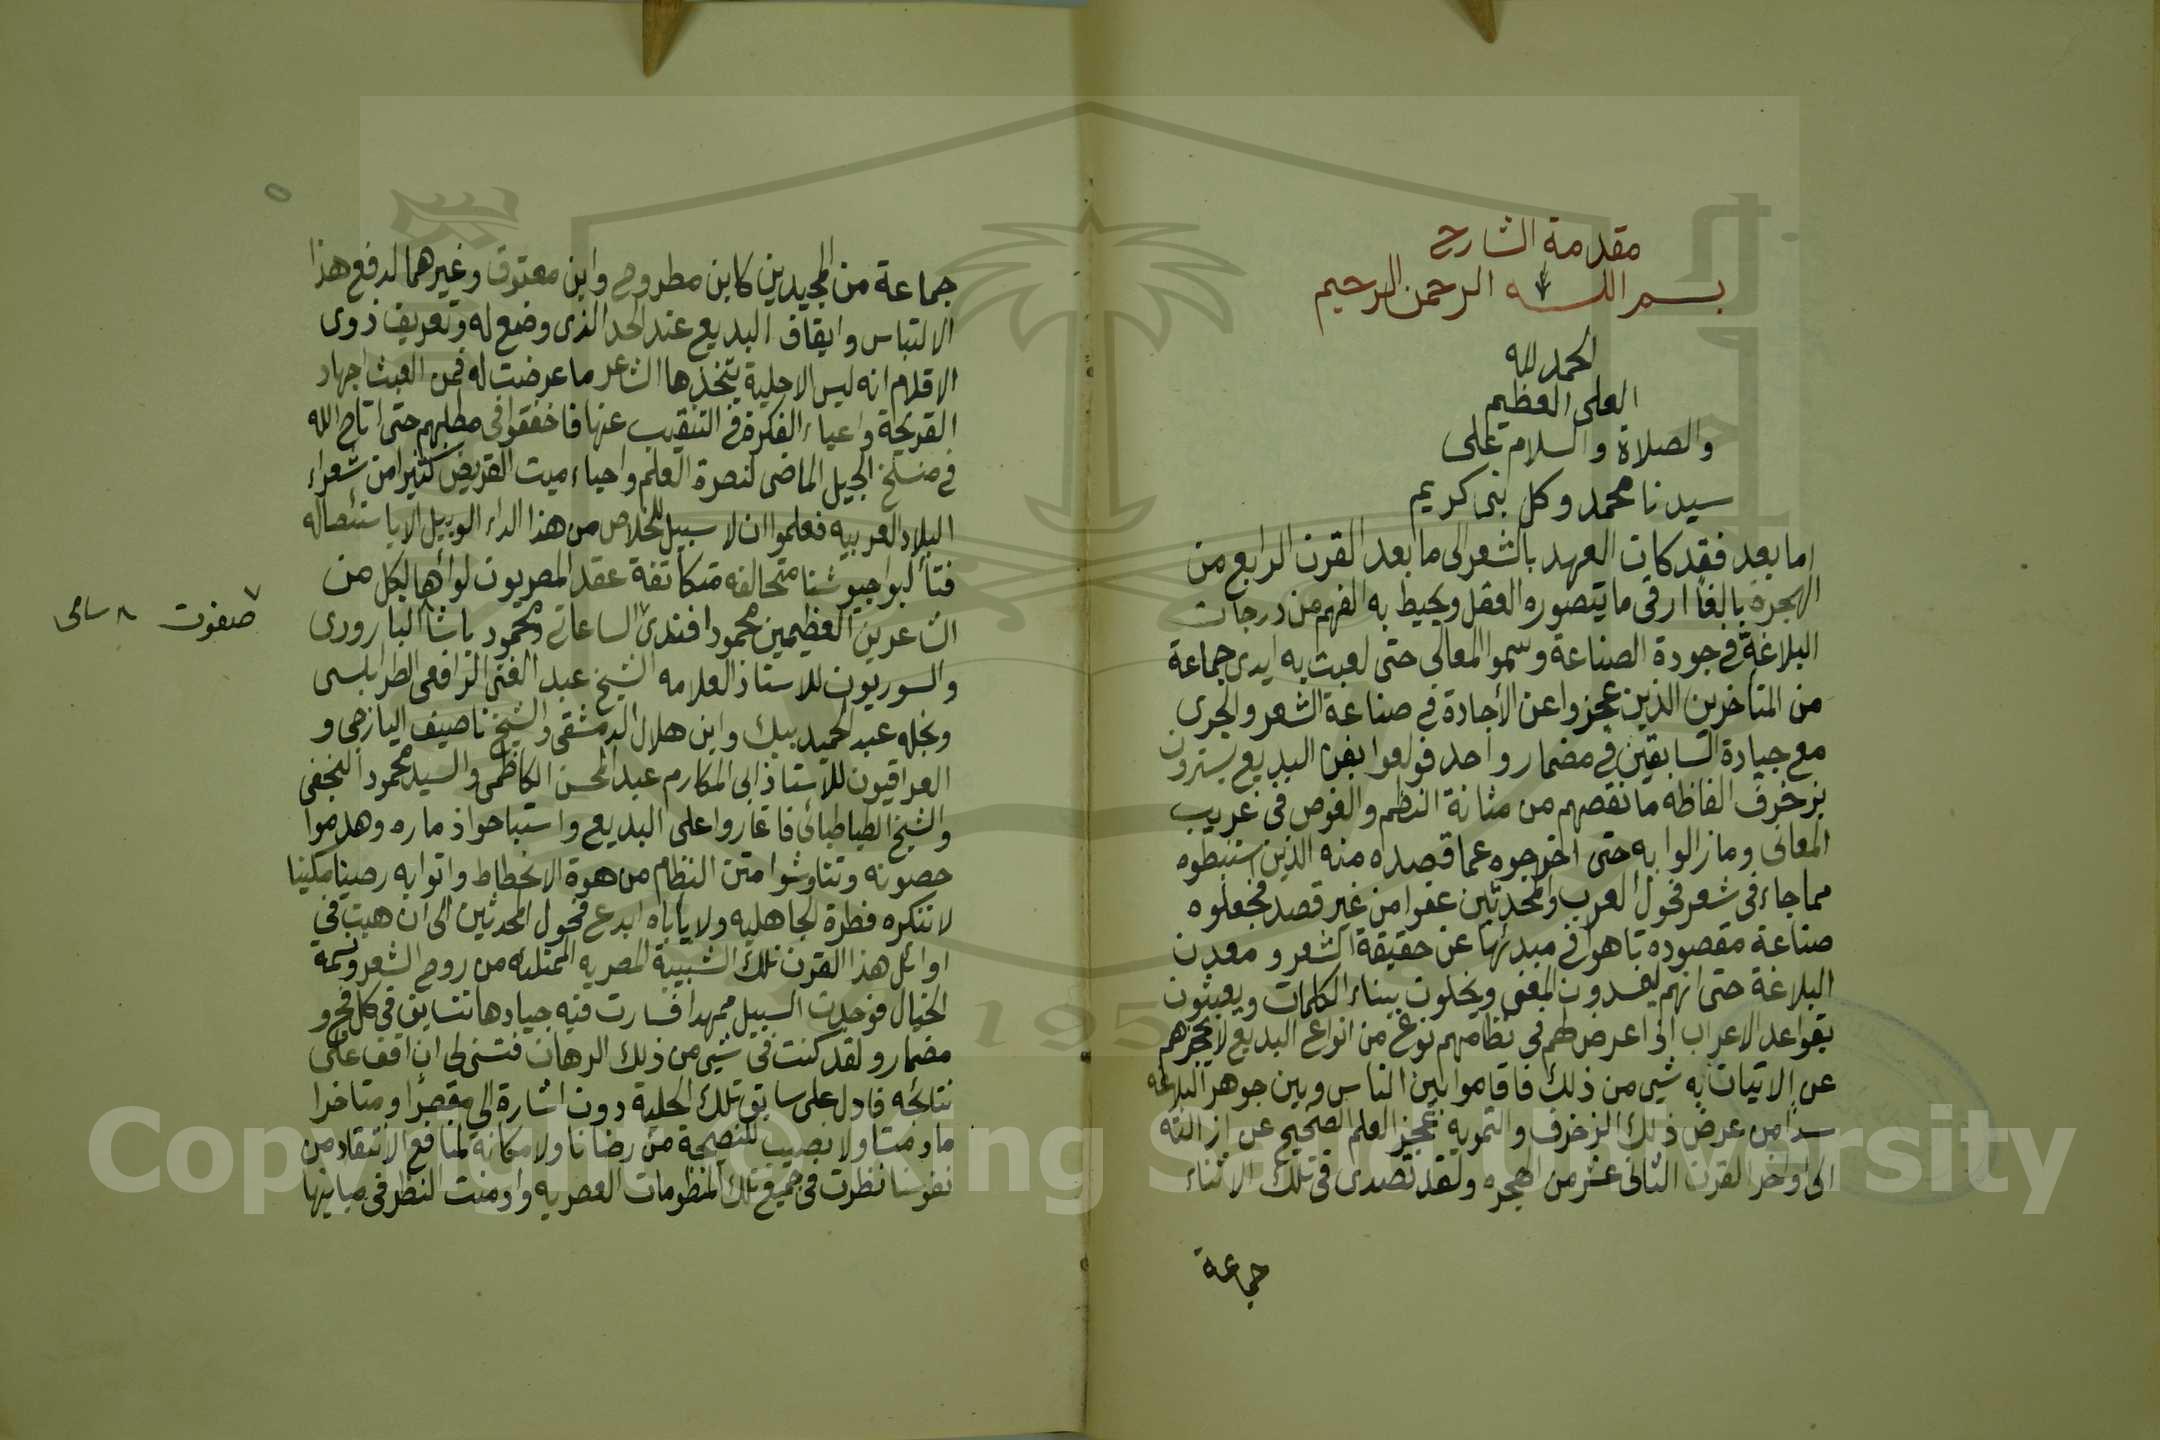 مقدمة الشارح
بسم الله الرحمن الرحيم
الحمد لله
العلى العظيم
والصلاة والسلام على
سيدنا محمد وكل نبى كريم
اما بعد فقد كان العهد بالشعر الى ما بعد القرن الرابع من
الهجرة بالغا ارقى ما يتصوره العقل ويحيط به الفهم من درجات
البلاغة فى جودة الصناعة وسمو المعانى حتى لعبت به ايدى جماعة
من المتاخرين الذين عجزوا عن الأجادة فى صناعة الشعر والجرى
مع جيادة السابقين فى مضمار واحد فولعوا بفن البديع يسترون
بزخرف الفاظه ما نقصهم من متانة النظم والغوص فى غريب
المعانى وما زالوا به حتى اخرجوه عما قصداه منه الذين استنبطوه
مما جاء فى شعر فحول العرب والمحدثين عفوا من غير قصد فجعلوه
صناعة مقصوده تاهوا فى مبدئها عن حقيقة الشعر و معدن
البلاغة حتى انهم يفسدون المعنى ويخلون ببناء الكلمات ويعبثون
بقواعد الاعراب اذا عرض لهم فى نظامهم نوع من انواع البديع لا يحجزهم
عن الاتيان به شىء من ذلك فاقاموا بين الناس وبين جوهر البلاغه
سدا من عرض ذلك الزخرف والتمويه فعجز العلم الصحيح عن ازالته
الى اواخر القرن الثانى عشر من الهجره ولقد تصدى فى تلك الاثناء
جماعة
جماعة من المجيدين كابن مطروح وابن معتوق وغيرهما لدفع هذا
الالتباس وايقاف البديع عند الحد الذى وضع له وتعريف ذوى
الاقلام انه ليس الا حلية يتخذها الشاعر ما عرضت له فمن العبث اجهاد
القريحة واعياء الفكرة فى التنقيب عنها فاخفقوا فى مطلبهم حتى اتاح الله
فى منسلخ الجيل الماضى لنصرة العلم واحياء ميت القريض كثيرا من شعراء
البلاد العربيه فعلموا ان لا سبيل للخلاص من هذا الداء الوبيل الا باستئصاله
فتألبوا جيوشا متحالفه متكاتفة عقد المصريون لوائها لكل من
الشاعرين العظيمين محمود افندى الساعاتى ومحمود باشا البارودى
٧ صفوت ٨ سامى
والسوريون للاستاذ العلامه الشيخ عبد الغنى الرافعى الطرابلسى
ونجله عبد الحميد بيك وابن هلال الدمشقى والشيخ ناصيف اليازجى و
العراقيون للأستاذ ابى المكارم عبد المحسن الكاظمى والسيد محمود النجفى
والشيخ الطباطبائى فاغاروا على البديع واستباحوا ذماره وهدموا
حصونه وتناوشوا متن النظام من هوة الانحطاط واتوا به رصينا مكينا
لا تنكره فطرة الجاهليه ولا ياباه ابدع فحول المحدثين الى ان هبت فى
اوائل هذا القرن تلك الشبيبة المصريه الممتلئه من روح الشعر ونسمة
الخيال فوجدت السبيل ممهدا فسارت فيه جيادها تتسابق فى كل فج و
مضمار ولقد كنت فى شىء من ذلك الرهان فتسنى لى ان اقف على
نتائجه فادل على سابق تلك الحلبة دون اشارة الى مقصرا ومتاخرا
ما دمنا ولا نصيب للنصيحة من رضانا ولا مكانة لمنافع الانتقاد من
نفوسنا نظرت فى جميع تلك المنظومات العصريه وادمنت النظر فى مبانيها
Copyright © King Saud University
195